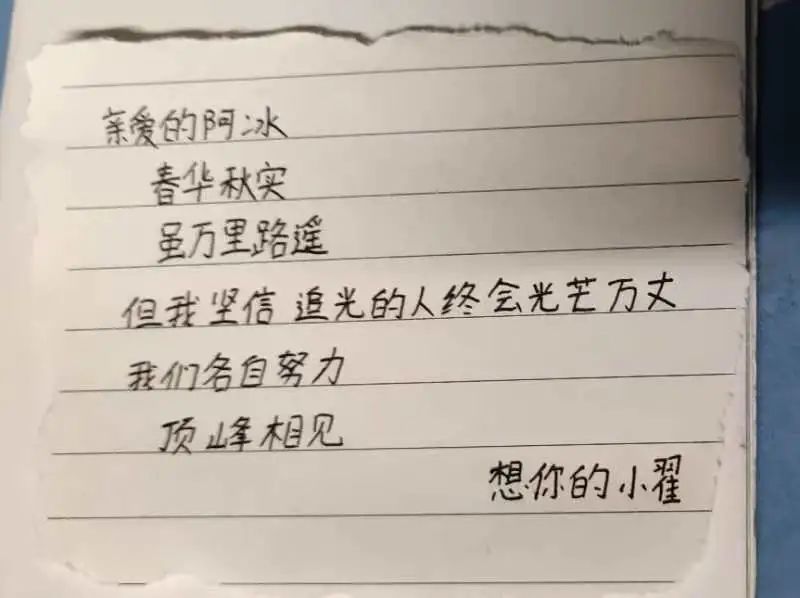 亲爱的阿冰
春华秋实
虽万里路遥
但我坚信 追光的人终会光芒万丈
我们各自努力
顶峰相见
想你的小翟